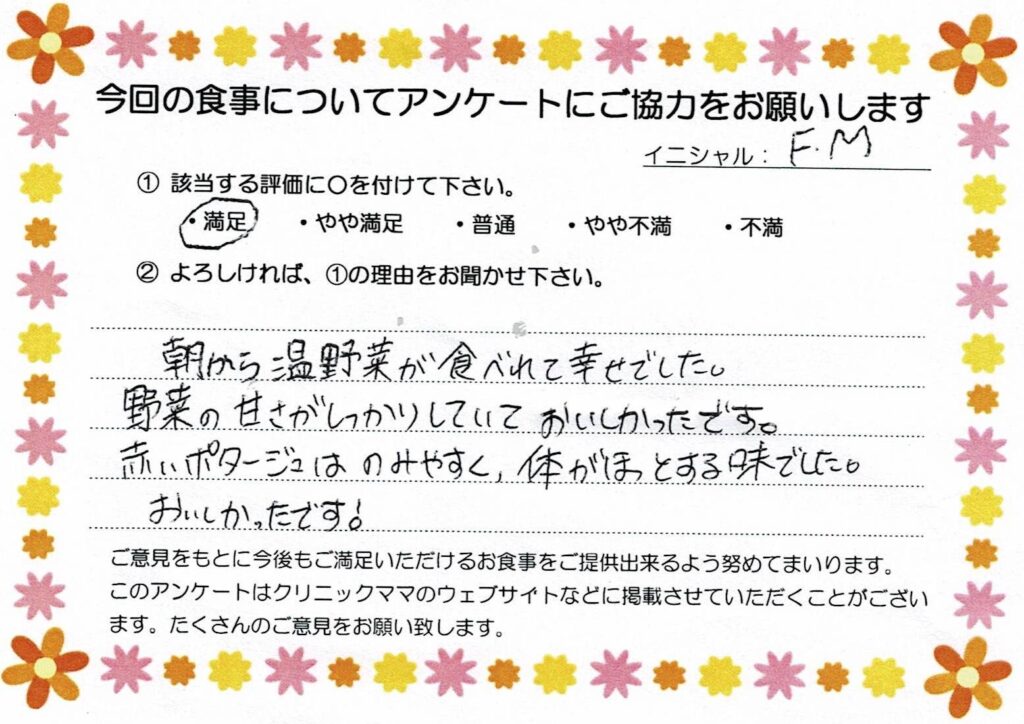 今回の食事についてアンケートにご協力をお願いします
イニシャル： F.M
① 該当する評価に〇を付けて下さい。
・満足 ・やや満足 ・普通 ・やや不満 ・不満
② よろしければ、①の理由をお聞かせ下さい。
朝から温野菜が食べれて幸せでした。
野菜の甘さがしっかりしていておいしかったです。
赤いポタージュはのみやすく、体がほっとする味でした。
おいしかったです!
ご意見をもとに今後もご満足いただけるお食事をご提供出来るよう努めてまいります。
このアンケートはクリニックママのウェブサイトなどに掲載させていただくことがござい
ます。たくさんのご意見をお願い致します。